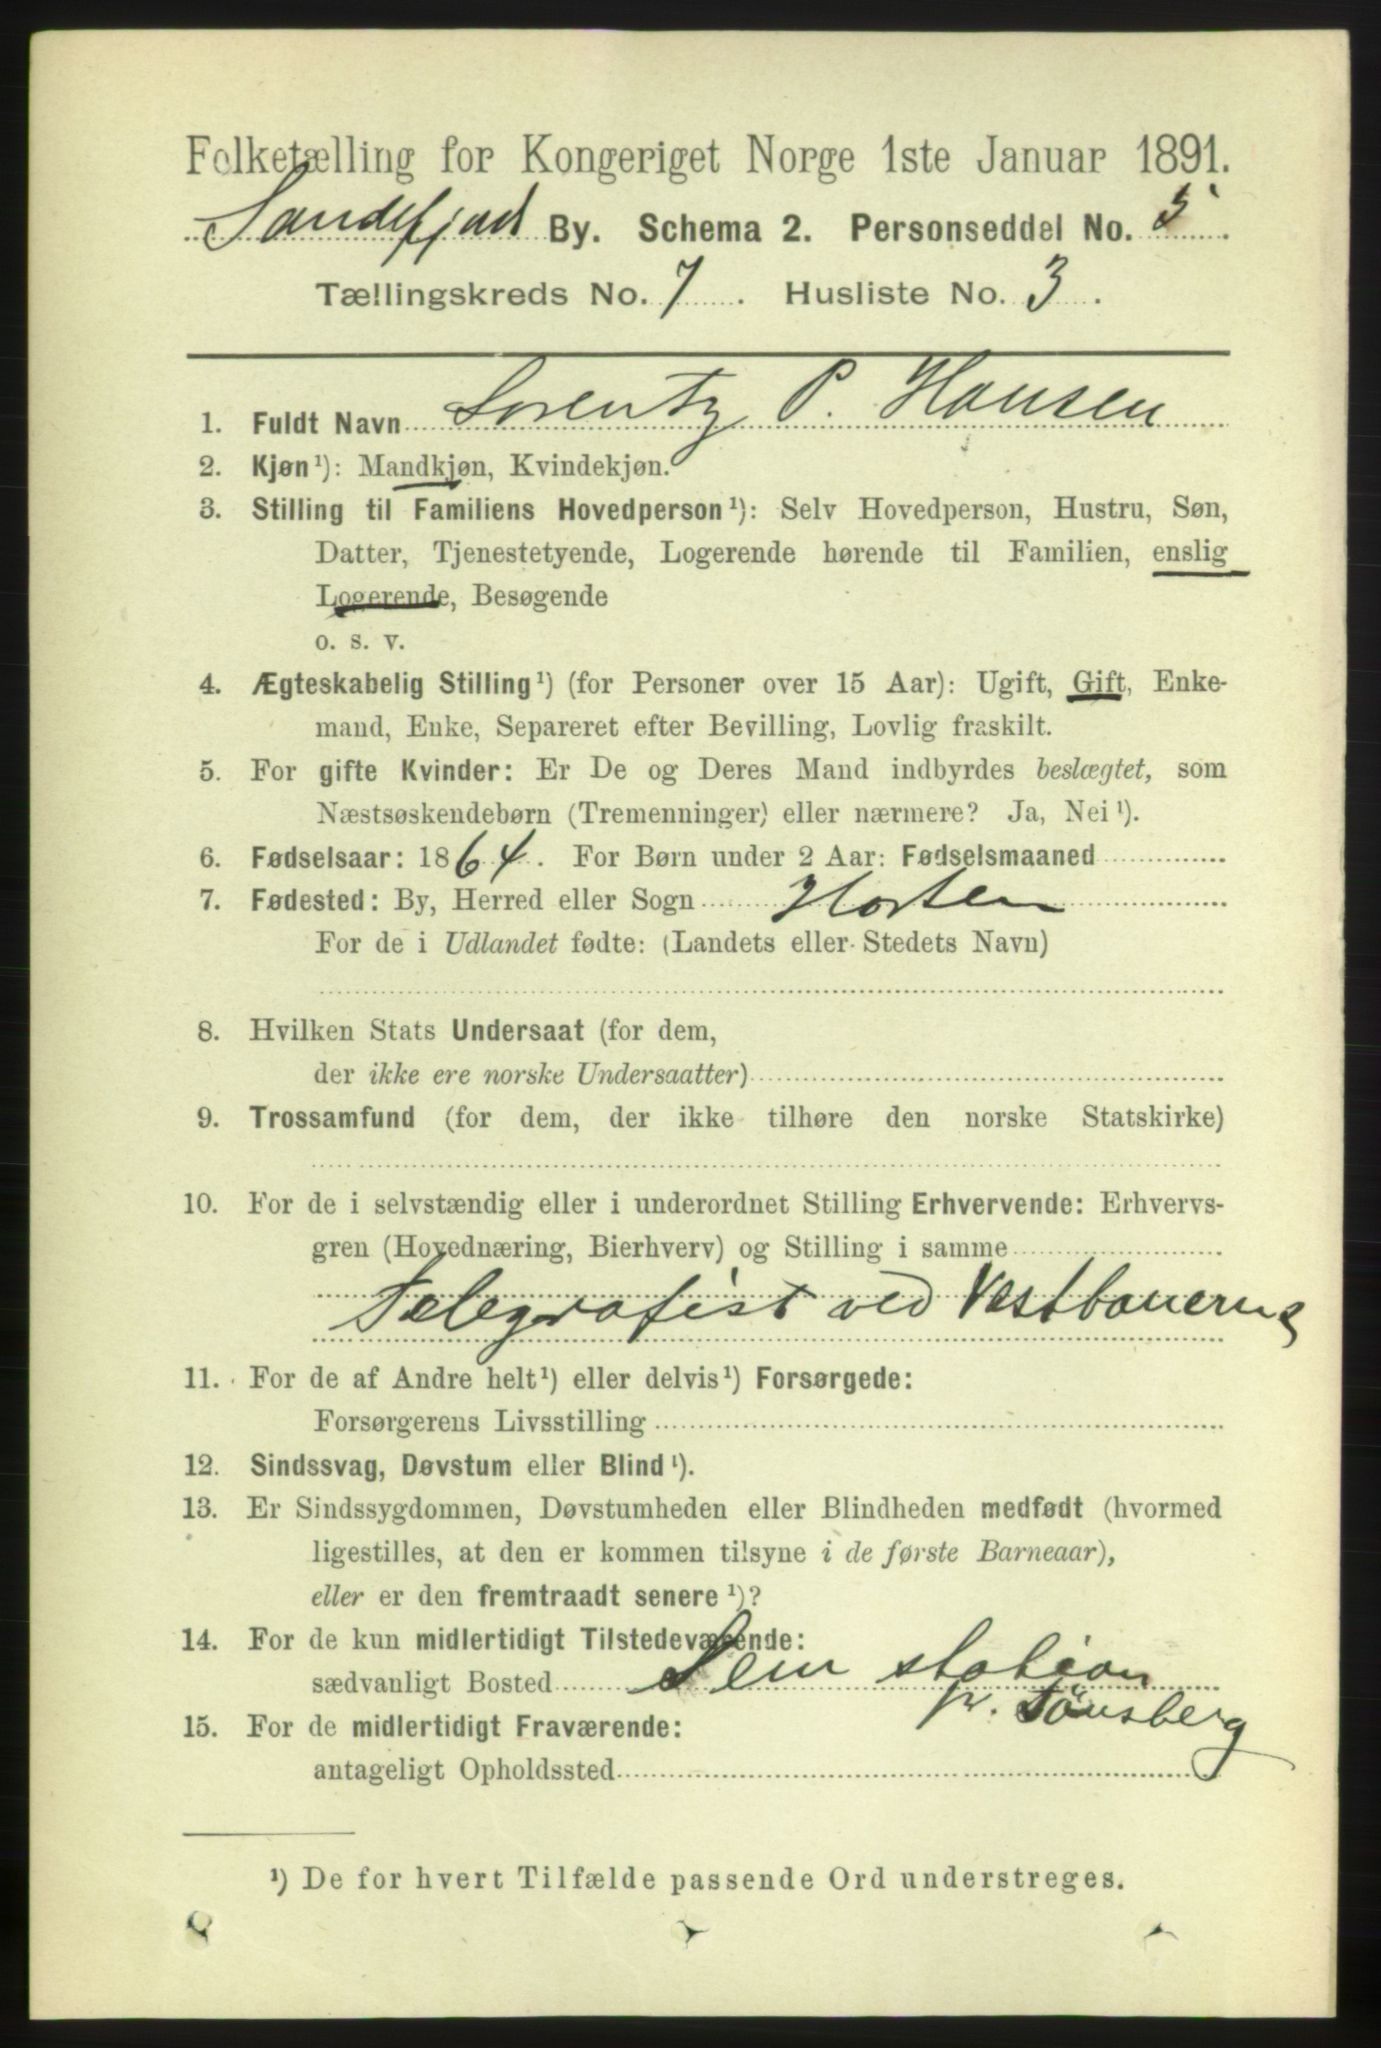 Folketælling for Kongeriget Norge 1ste Januar 1891.
Sandefjord By. Schema 2. Personseddel No. 5.
Tællingskreds No. 7. Husliste No. 3.
1. Fuldt Navn Lorentz P. Hansen
2. Kjøn¹): Mandkjøn, Kvindekjøn.
3. Stilling til Familiens Hovedperson¹): Selv Hovedperson, Hustru, Søn,
Datter, Tjenestetyende, Logerende hørende til Familien, enslig
Logerende, Besøgende
o. s. v.
4. Ægteskabelig Stilling¹) (for Personer over 15 Aar): Ugift, Gift, Enke-
mand, Enke, Separeret efter Bevilling, Lovlig fraskilt.
5. For gifte Kvinder: Er De og Deres Mand indbyrdes beslægtet, som
Næstsøskendebørn (Tremenninger) eller nærmere? Ja, Nei¹).
6. Fødselsaar: 1864. For Børn under 2 Aar: Fødselsmaaned
7. Fødested: By, Herred eller Sogn Horten
For de i Udlandet fødte: (Landets eller Stedets Navn)
8. Hvilken Stats Undersaat (for dem,
der ikke ere norske Undersaatter)
9. Trossamfund (for dem, der ikke tilhøre den norske Statskirke)
10. For de i selvstændig eller i underordnet Stilling Erhvervende: Erhvervs-
gren (Hovednæring, Bierhverv) og Stilling i samme
Telegrafist ved Vestbanerne
11. For de af Andre helt¹) eller delvis¹) Forsørgede:
Forsørgerens Livsstilling
12. Sindssvag, Døvstum eller Blind¹).
13. Er Sindssygdommen, Døvstumheden eller Blindheden medfødt (hvormed
ligestilles, at den er kommen tilsyne i de første Barneaar),
eller er den fremtraadt senere¹)?
14. For de kun midlertidigt Tilstedeværende:
sædvanligt Bosted Sem station
pr. Tønsberg
15. For de midlertidigt Fraværende:
antageligt Opholdssted
¹) De for hvert Tilfælde passende Ord understreges.